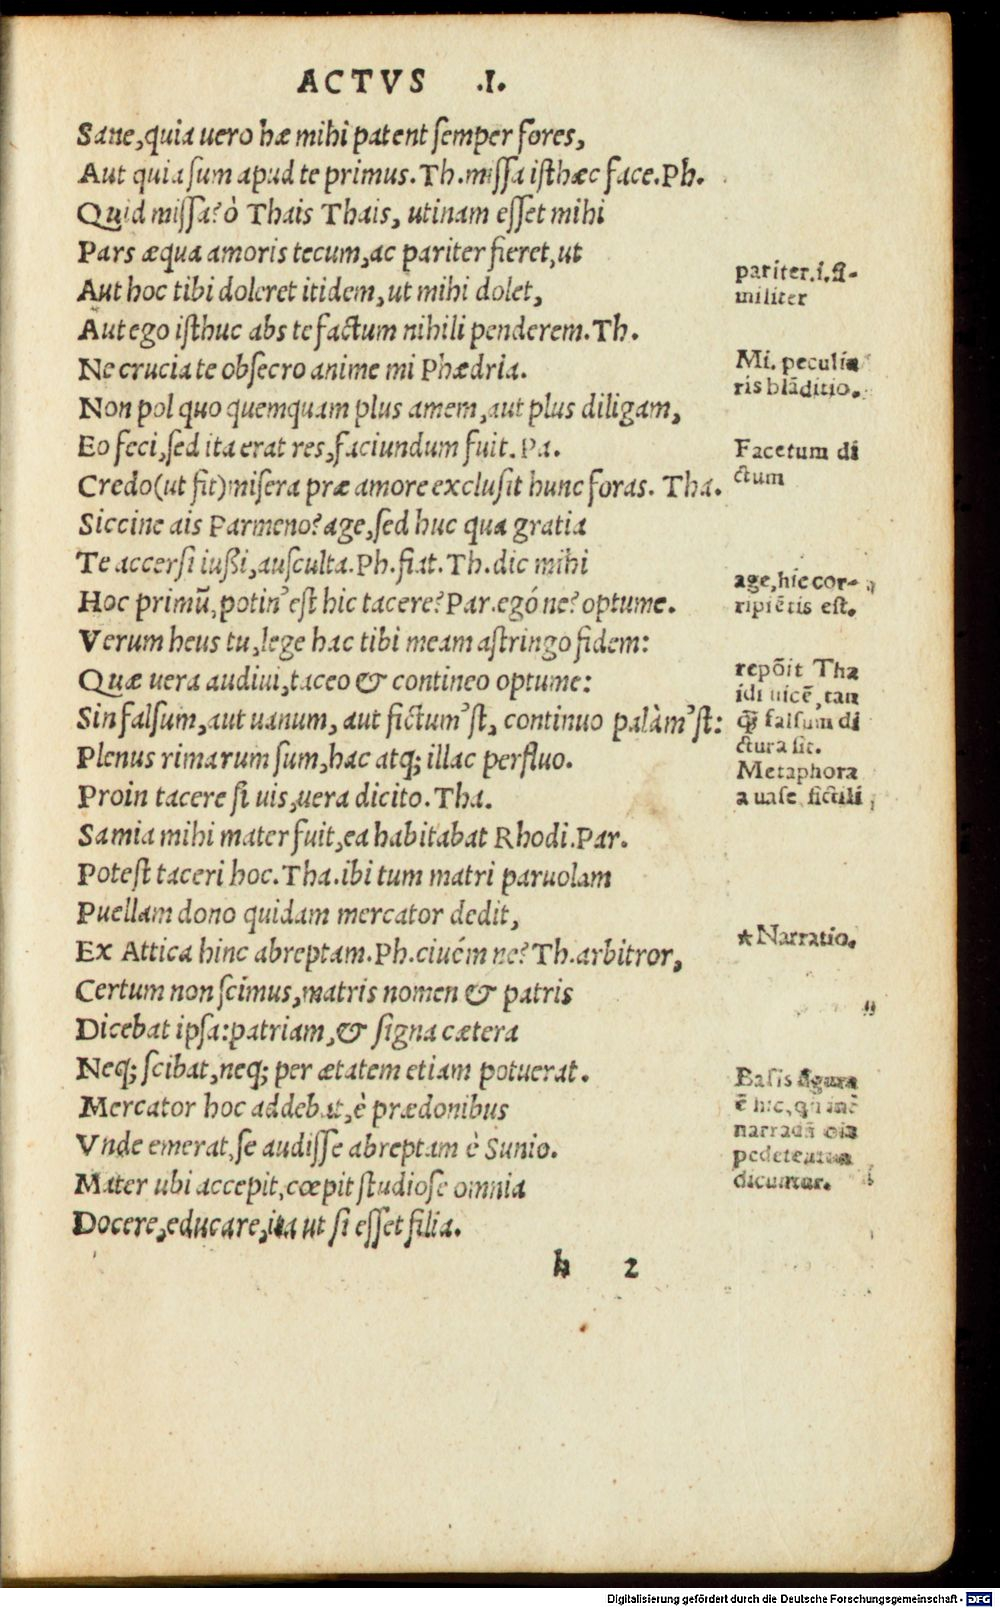 ACTVS .I.
Sane, quia uero hæ mihi patent semper fores,
Aut quia sum apud te primus. Th. missa isthæc face. Ph.
Quid missa? ò Thais Thais, utinam esset mihi
Pars æqua amoris tecum, ac pariter fieret, ut
Aut hoc tibi doleret itidem, ut mihi dolet,
Aut ego isthuc abs te factum nihili penderem. Th.
Ne crucia te obsecro anime mi Phædria.
Non pol quo quemquam plus amem, aut plus diligam,
Eo feci, sed ita erat res, faciundum fuit. Pa.
Credo (ut fit) misera præ amore exclusit hunc foras. Tha.
Siccine ais Parmeno? age, sed huc qua gratia
Te accersi iußi, ausculta. Ph. fiat. Th. dic mihi
Hoc primū, potin' est hic tacere? Par. egó ne? optume.
Verum heus tu, lege hac tibi meam astringo fidem:
Quæ uera audiui, taceo & contineo optume:
Sin falsum, aut uanum, aut fictum'st, continuo palàm'st:
Plenus rimarum sum, hac atq; illac perfluo.
Proin tacere si uis, uera dicito. Tha.
Samia mihi mater fuit, ea habitabat Rhodi. Par.
Potest taceri hoc. Tha. ibi tum matri paruolam
Puellam dono quidam mercator dedit,
Ex Attica hinc abreptam. Ph. ciuém ne? Th. arbitror,
Certum non scimus, matris nomen & patris
Dicebat ipsa: patriam, & signa cætera
Neq; scibat, neq; per ætatem etiam potuerat.
Mercator hoc addebat, è prædonibus
Vnde emerat, se audisse abreptam è Sunio.
Mater ubi accepit, cœpit studiose omnia
Docere, educare, ita ut si esset filia.
h 2
pariter.i.si-
militer
Mi. peculia
ris blāditio.
Facetum di
ctum
age, hic cor-
ripiētis est.
repōit Tha
idi uicē, tan
q̃ falsum di
ctura sit.
Metaphora
a uase fictili
★Narratio.
Basis figura
ē hic,
narradā oīa
pedetentim
dicuntur.
Digitalisierung gefördert durch die Deutsche Forschungsgemeinschaft - DFG